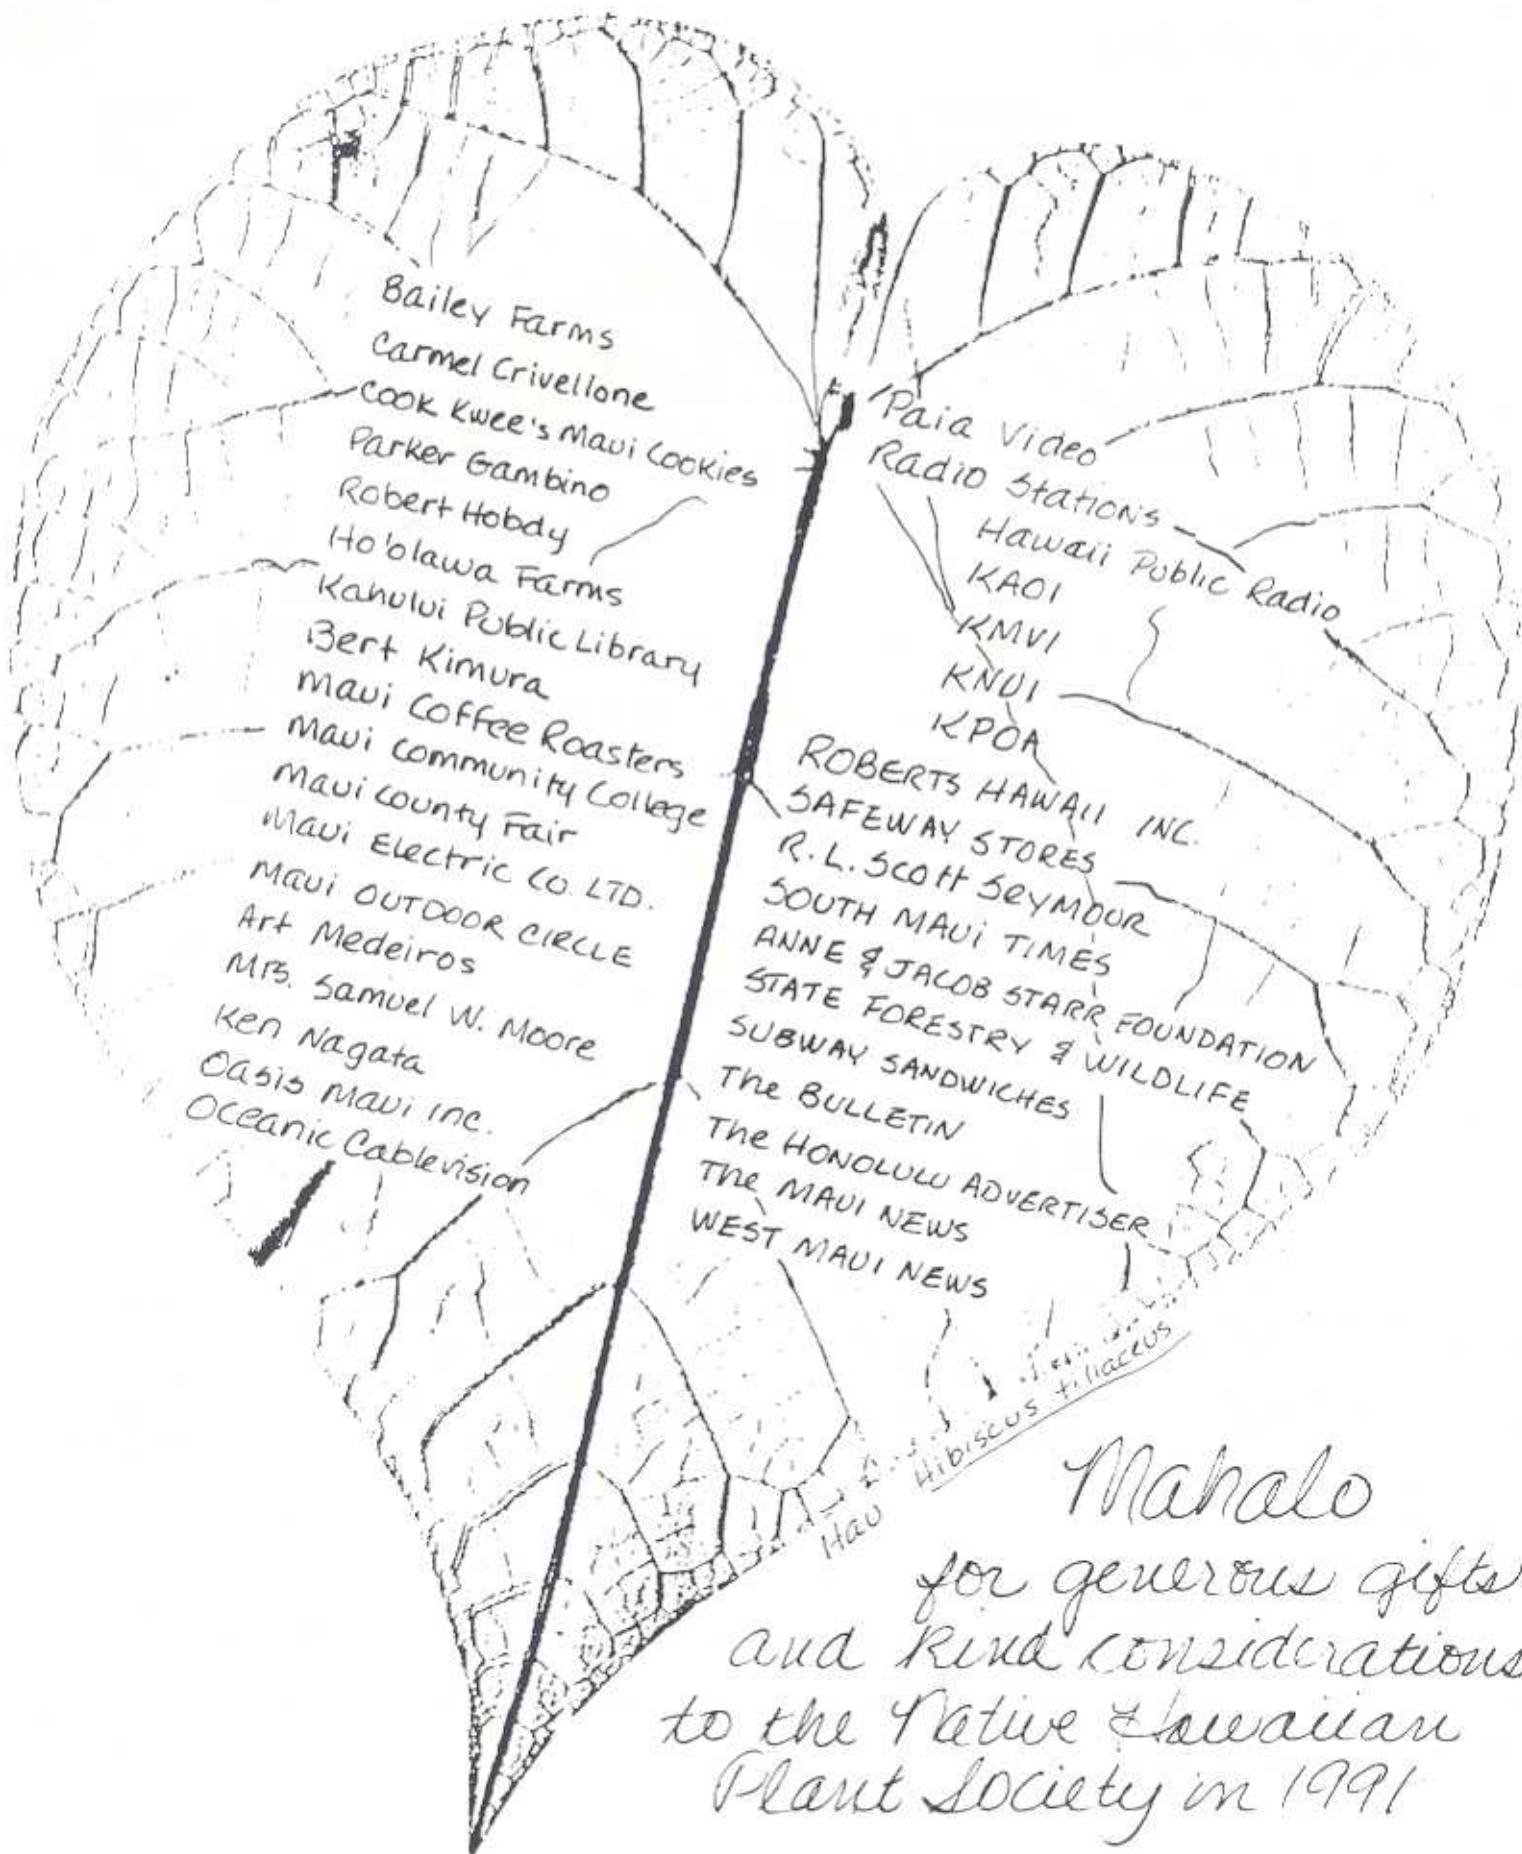 Bailey Farms
Carmel Crivellone
Cook Kwee's Maui Cookies
Parker Gambino
Robert Hobdy
Ho'olawa Farms
Kahului Public Library
Bert Kimura
Maui Coffee Roasters
Maui Community College
Maui County Fair
Maui Electric Co. LTD.
Maui OUTDOOR CIRCLE
Art Medeiros
Mrs. Samuel W. Moore
Ken Nagata
Oasis Maui Inc.
Oceanic Cablevision
Paia Video
Radio Stations
Hawaii Public Radio
KAOI
KMVI
KNUI
KPOA
ROBERTS HAWAII INC.
SAFEWAY STORES
R.L. Scott SEYMOUR
SOUTH MAUI TIMES
ANNE & JACOB STARR FOUNDATION
STATE FORESTRY & WILDLIFE
SUBWAY SANDWICHES
The BULLETIN
The HONOLULU ADVERTISER
The MAUI NEWS
WEST MAUI NEWS
Hau Hibiscus tiliaceus
Mahalo
for generous gifts
and kind considerations
to the Native Hawaiian
Plant Society in 1991